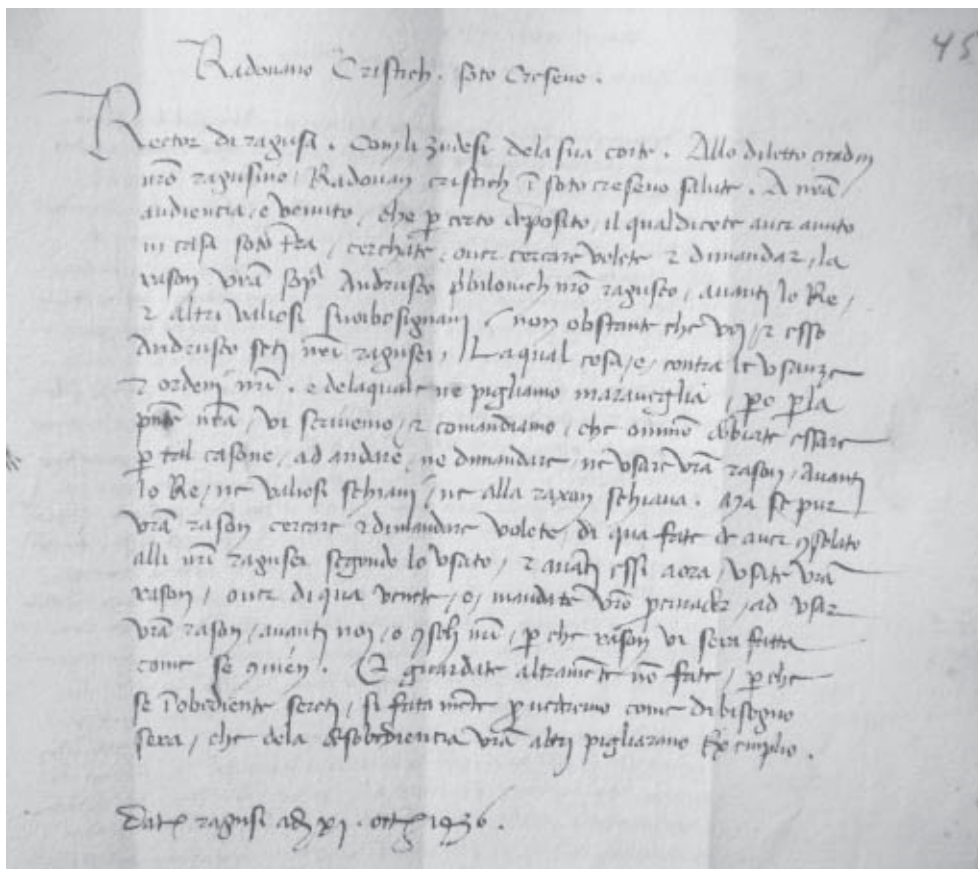 45
Radouano Cristich. soto Creseuo.
Rector di ragusa. Con li zudesi dela sua corte. Allo diletto citadin
nr̄o ragusino, Radouan cristich ī soto creseuo salute. A nr̄a
audiencia, e venuto, che p̱ certo deposito, il qual dicete auer auuto
in casa soto tr̄ra, cerchate, ouer cercare volete ⁊ dimandar, la
rason vr̄a Andrusco nr̄o raguseo, auanti lo Re,
⁊ altri valiosi, non obstante che voi, ⁊ esso
Andrusco seti nr̄i ragusei, La qual cosa, e, contra le vsanze
⁊ ordeni nr̄i. e dela quale ne pigliamo maraueglia, p̱o p̱ la
pn̄te nr̄a, vi scriuemo, ⁊ comandiamo, che debiate cessare
p̱ tal casone, ad andare, ne dimandare, ne vsare vr̄a rason, auanti
lo Re, ne valiosi schiaui, ne alla raxon schiaua. Ma se pur
vr̄a rason cercare ⁊ dimandare volete, di qua fate de auer ꝯsolato
alli nr̄i ragusei segondo lo vsato, ⁊ auāti essi aora, vsate vr̄a
rason, ouer di qua venete, o, mandate vr̄o, ad vsar
vr̄a rason, auanti noi, o ꝯsoli nr̄i, p̱ che rason vi sera fatta
come se ꝯuien. Et guardate altramēte nō fate, p̱ che
se īobediente sereti, si fatamēte ꝓuederemo come di bisogno
sera, che dela desobediencia vr̄a altri pigliarano exemplio.
Dat ragusi adi xi. 1436.